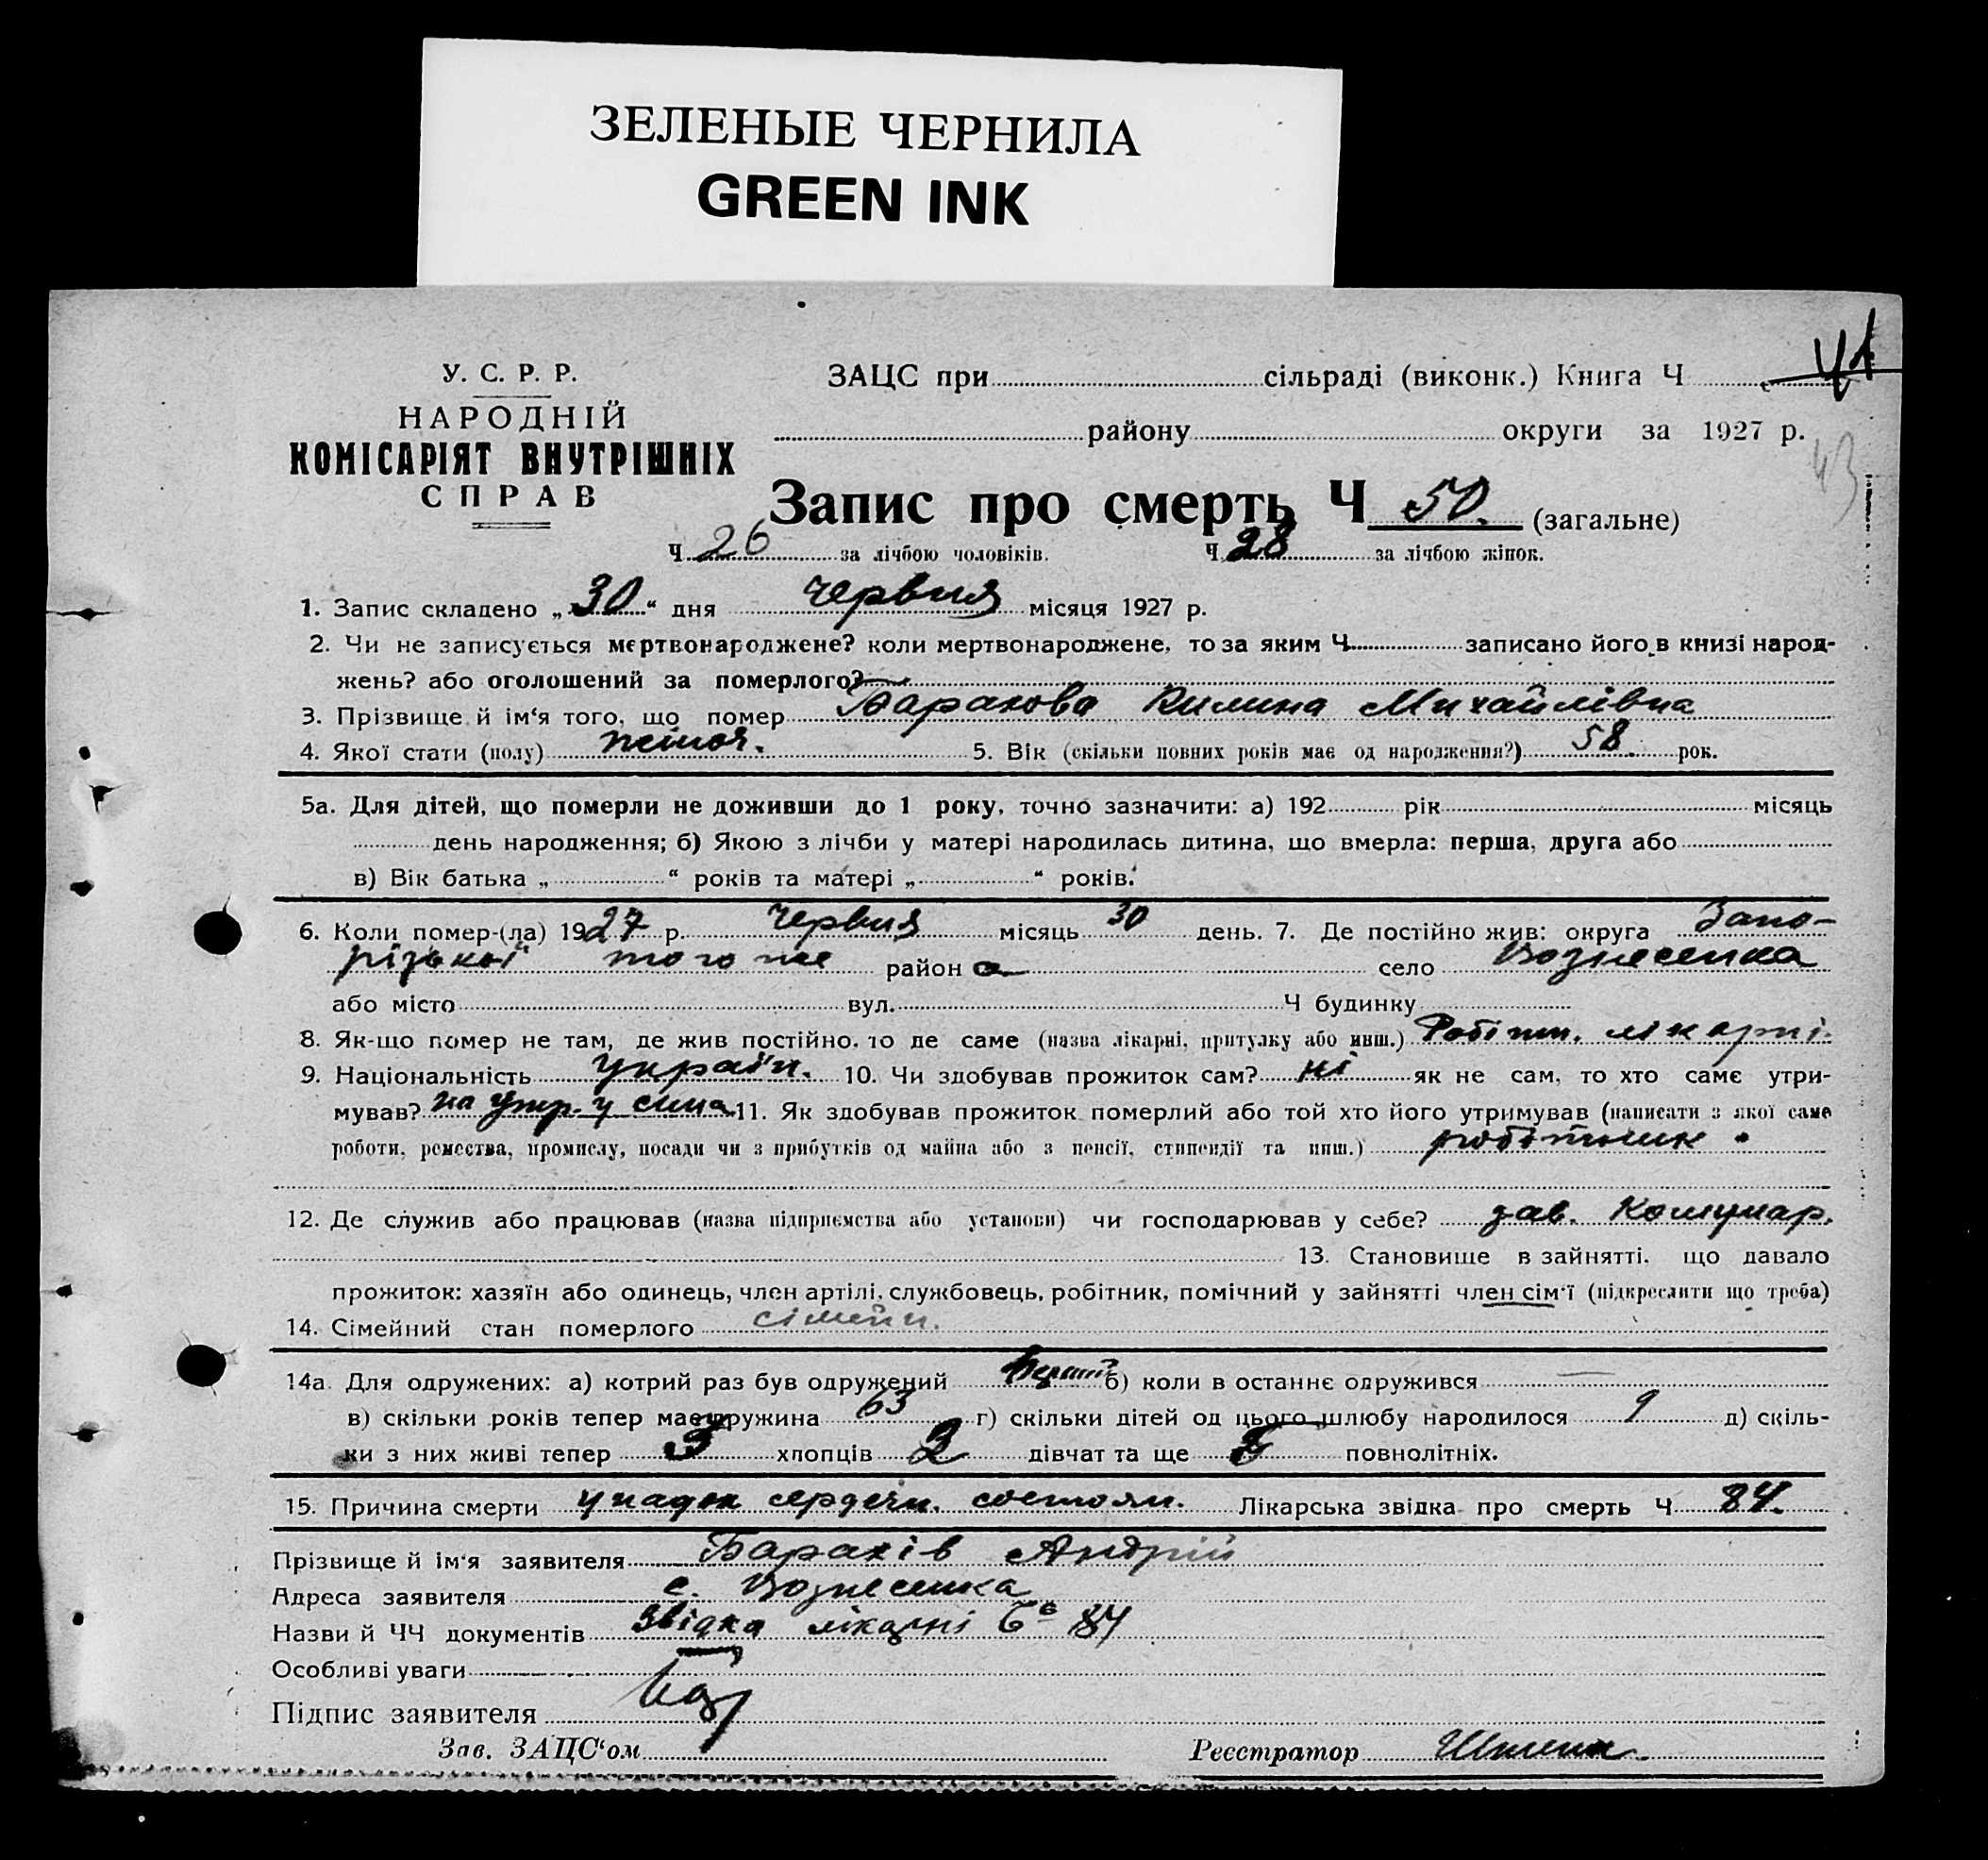 ЗЕЛЕНЫЕ ЧЕРНИЛА
GREEN INK
У. С. Р. Р.
НАРОДНІЙ
КОМІСАРІЯТ ВНУТРІШНІХ
СПРАВ
ЗАЦС при сільраді (виконк.) Книга Ч
району округи за 1927 р.
43
Запис про смерть Ч 50. (загальне)
Ч 26 за лічбою чоловіків. Ч 28 за лічбою жінок.
1. Запис складено „30“ дня червня місяця 1927 р.
2. Чи не записується мертвонароджене? коли мертвонароджене, то за яким Ч записано його в книзі народ-
жень? або оголошений за померлого?
3. Прізвище й ім‘я того, що помер Баракова Килина Михайлівна
4. Якої стати (полу) жіноч. 5. Вік (скільки повних років має од народження?) 58. рок.
5а. Для дітей, що померли не доживши до 1 року, точно зазначити: а) 192 рік місяць
день народження; б) Якою з лічби у матері народилась дитина, що вмерла: перша, друга або
в) Вік батька „ “ років та матері „ “ років.
6. Коли помер-(ла) 1927 р. червня місяць 30 день. 7. Де постійно жив: округа Запо-
різької того же район а село Вознесенка
або місто вул. Ч будинку
8. Як-що помер не там, де жив постійно, то де саме (назва лікарні, притулку або инш.) Робітн. лікарні.
9. Національність україн. 10. Чи здобував прожиток сам? ні як не сам, то хто саме утри-
мував? на утр. у сина 11. Як здобував прожиток померлий або той хто його утримував (написати з якої саме
роботи, ремества, промислу, посади чи з прибутків од майна або з пенсії, стипендії та инш.) робітник.
12. Де служив або працював (назва підприємства або установи) чи господарював у себе? зав. Комунар.
13. Становище в зайнятті, що давало
прожиток: хазяїн або одинець, член артілі, службовець, робітник, помічний у зайнятті член сім‘ї (підкреслити що треба)
14. Сімейний стан померлого сімейн.
14а. Для одружених: а) котрий раз був одружений Перший б) коли в останнє одружився —
в) скільки років тепер має дружина 63 г) скільки дітей од цього шлюбу народилося 9 д) скіль-
ки з них живі тепер 3 хлопців 2 дівчат та ще 5 повнолітніх.
15. Причина смерти упадок сердечн. состоян. Лікарська звідка про смерть Ч 84.
Прізвище й ім‘я заявителя Бараків Андрій
Адреса заявителя с. Вознесенка
Назви й ЧЧ документів Звідка лікарні 84
Особливі уваги
Підпис заявителя Бар
Зав. ЗАЦС‘ом Реєстратор